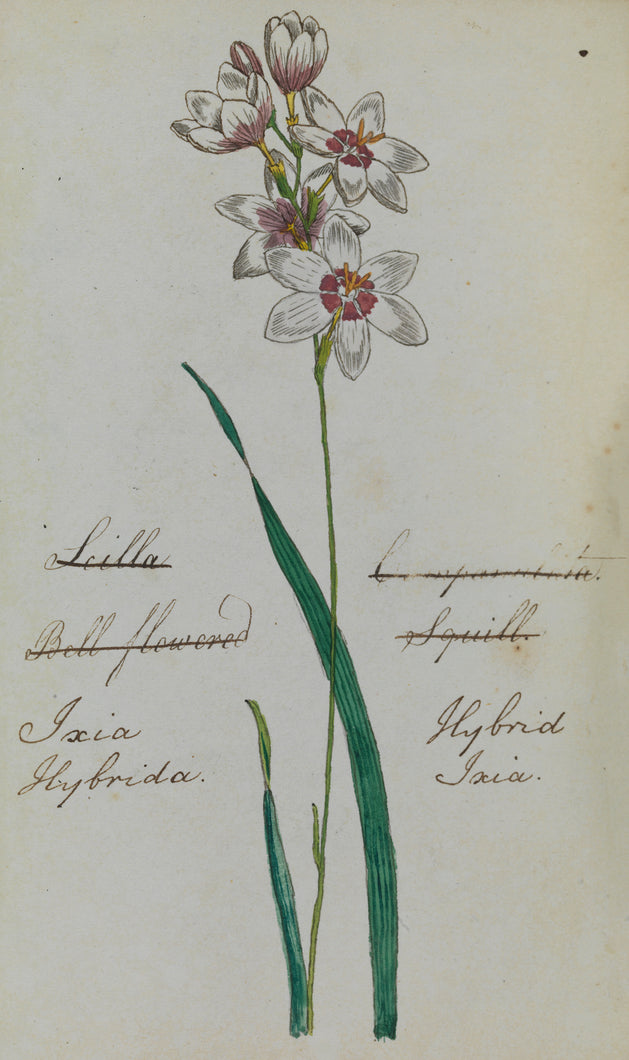 Scilla
Campanulata.
Bell flowered
Squill.
Ixia
Hybrida.
Hybrid
Ixia.